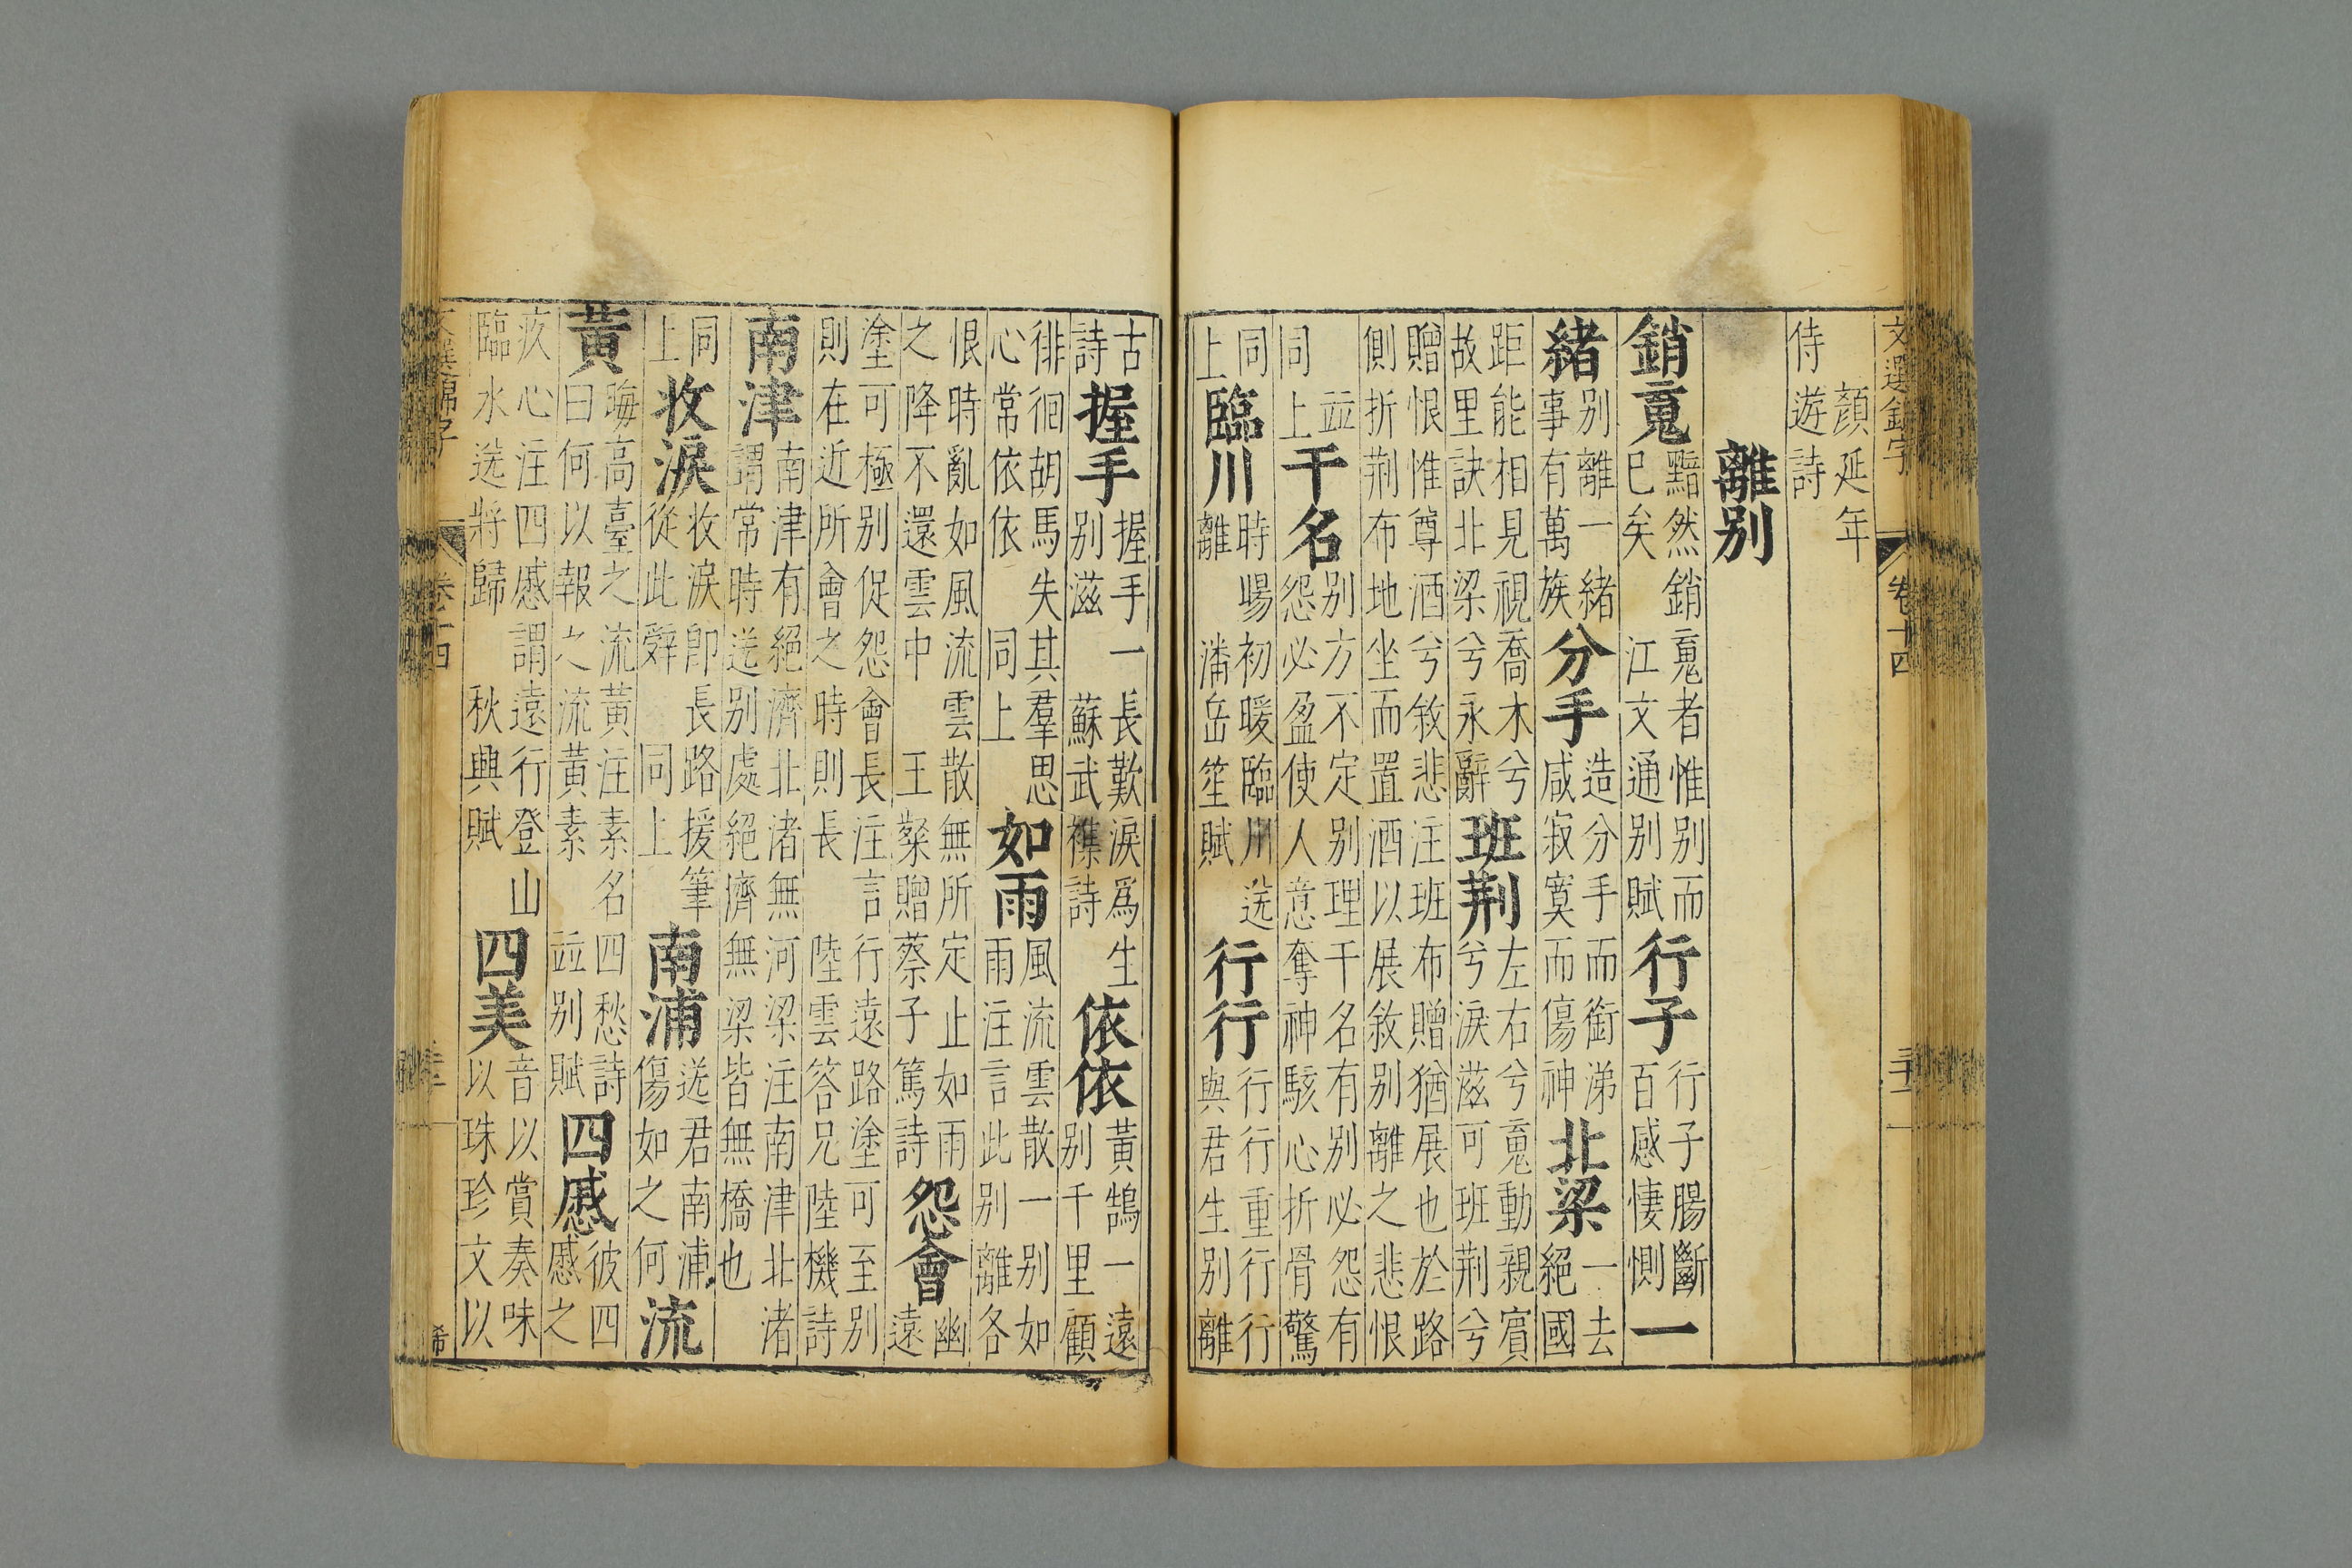 文選錦字 卷十四
顏延年侍遊詩
離別
銷䰟黯然銷䰟者惟別而已矣江文通別賦行子行子腸斷百感悽惻一
緒別離一緒事有萬族分手造分手而銜涕咸寂寞而傷神北梁一去絕國
距能相見視喬木兮故里訣北梁兮永辭班荆左右兮䰟動親賓兮淚滋可班荆兮
贈恨惟尊酒兮敘悲注班布贈猶展也於路側折荆布地坐而置酒以展敘別離之悲恨
並同上千名別方不定別理千名有別必怨有怨必盈使人意奪神駭心折骨驚
同上臨川時暘初暖臨川送離潘岳笙賦行行行行重行行與君生別離
古詩握手握手一長歎淚爲生別滋蘇武襍詩依依黃鵠一遠別千里顧
徘徊胡馬失其羣思心常依依同上如雨風流雲散一別如雨注言此別離各
恨時亂如風流雲散無所定止如雨之降不還雲中王粲贈蔡子篤詩怨會幽遠
塗可極別促怨會長注言行遠路塗可至別則在近所會之時則長陸雲答兄陸機詩
南津南津有絕濟北渚無河梁注南津北渚謂常時送別處絕濟無梁皆無橋也
同上收淚收淚即長路援筆從此辤同上南浦送君南浦傷如之何流
黃晦高臺之流黃注素名四愁詩曰何以報之流黃素並別賦四慼彼四慼之
疚心注四慼謂遠行登山臨水送將歸秋興賦四美音以賞奏味以珠珍文以
卷十四